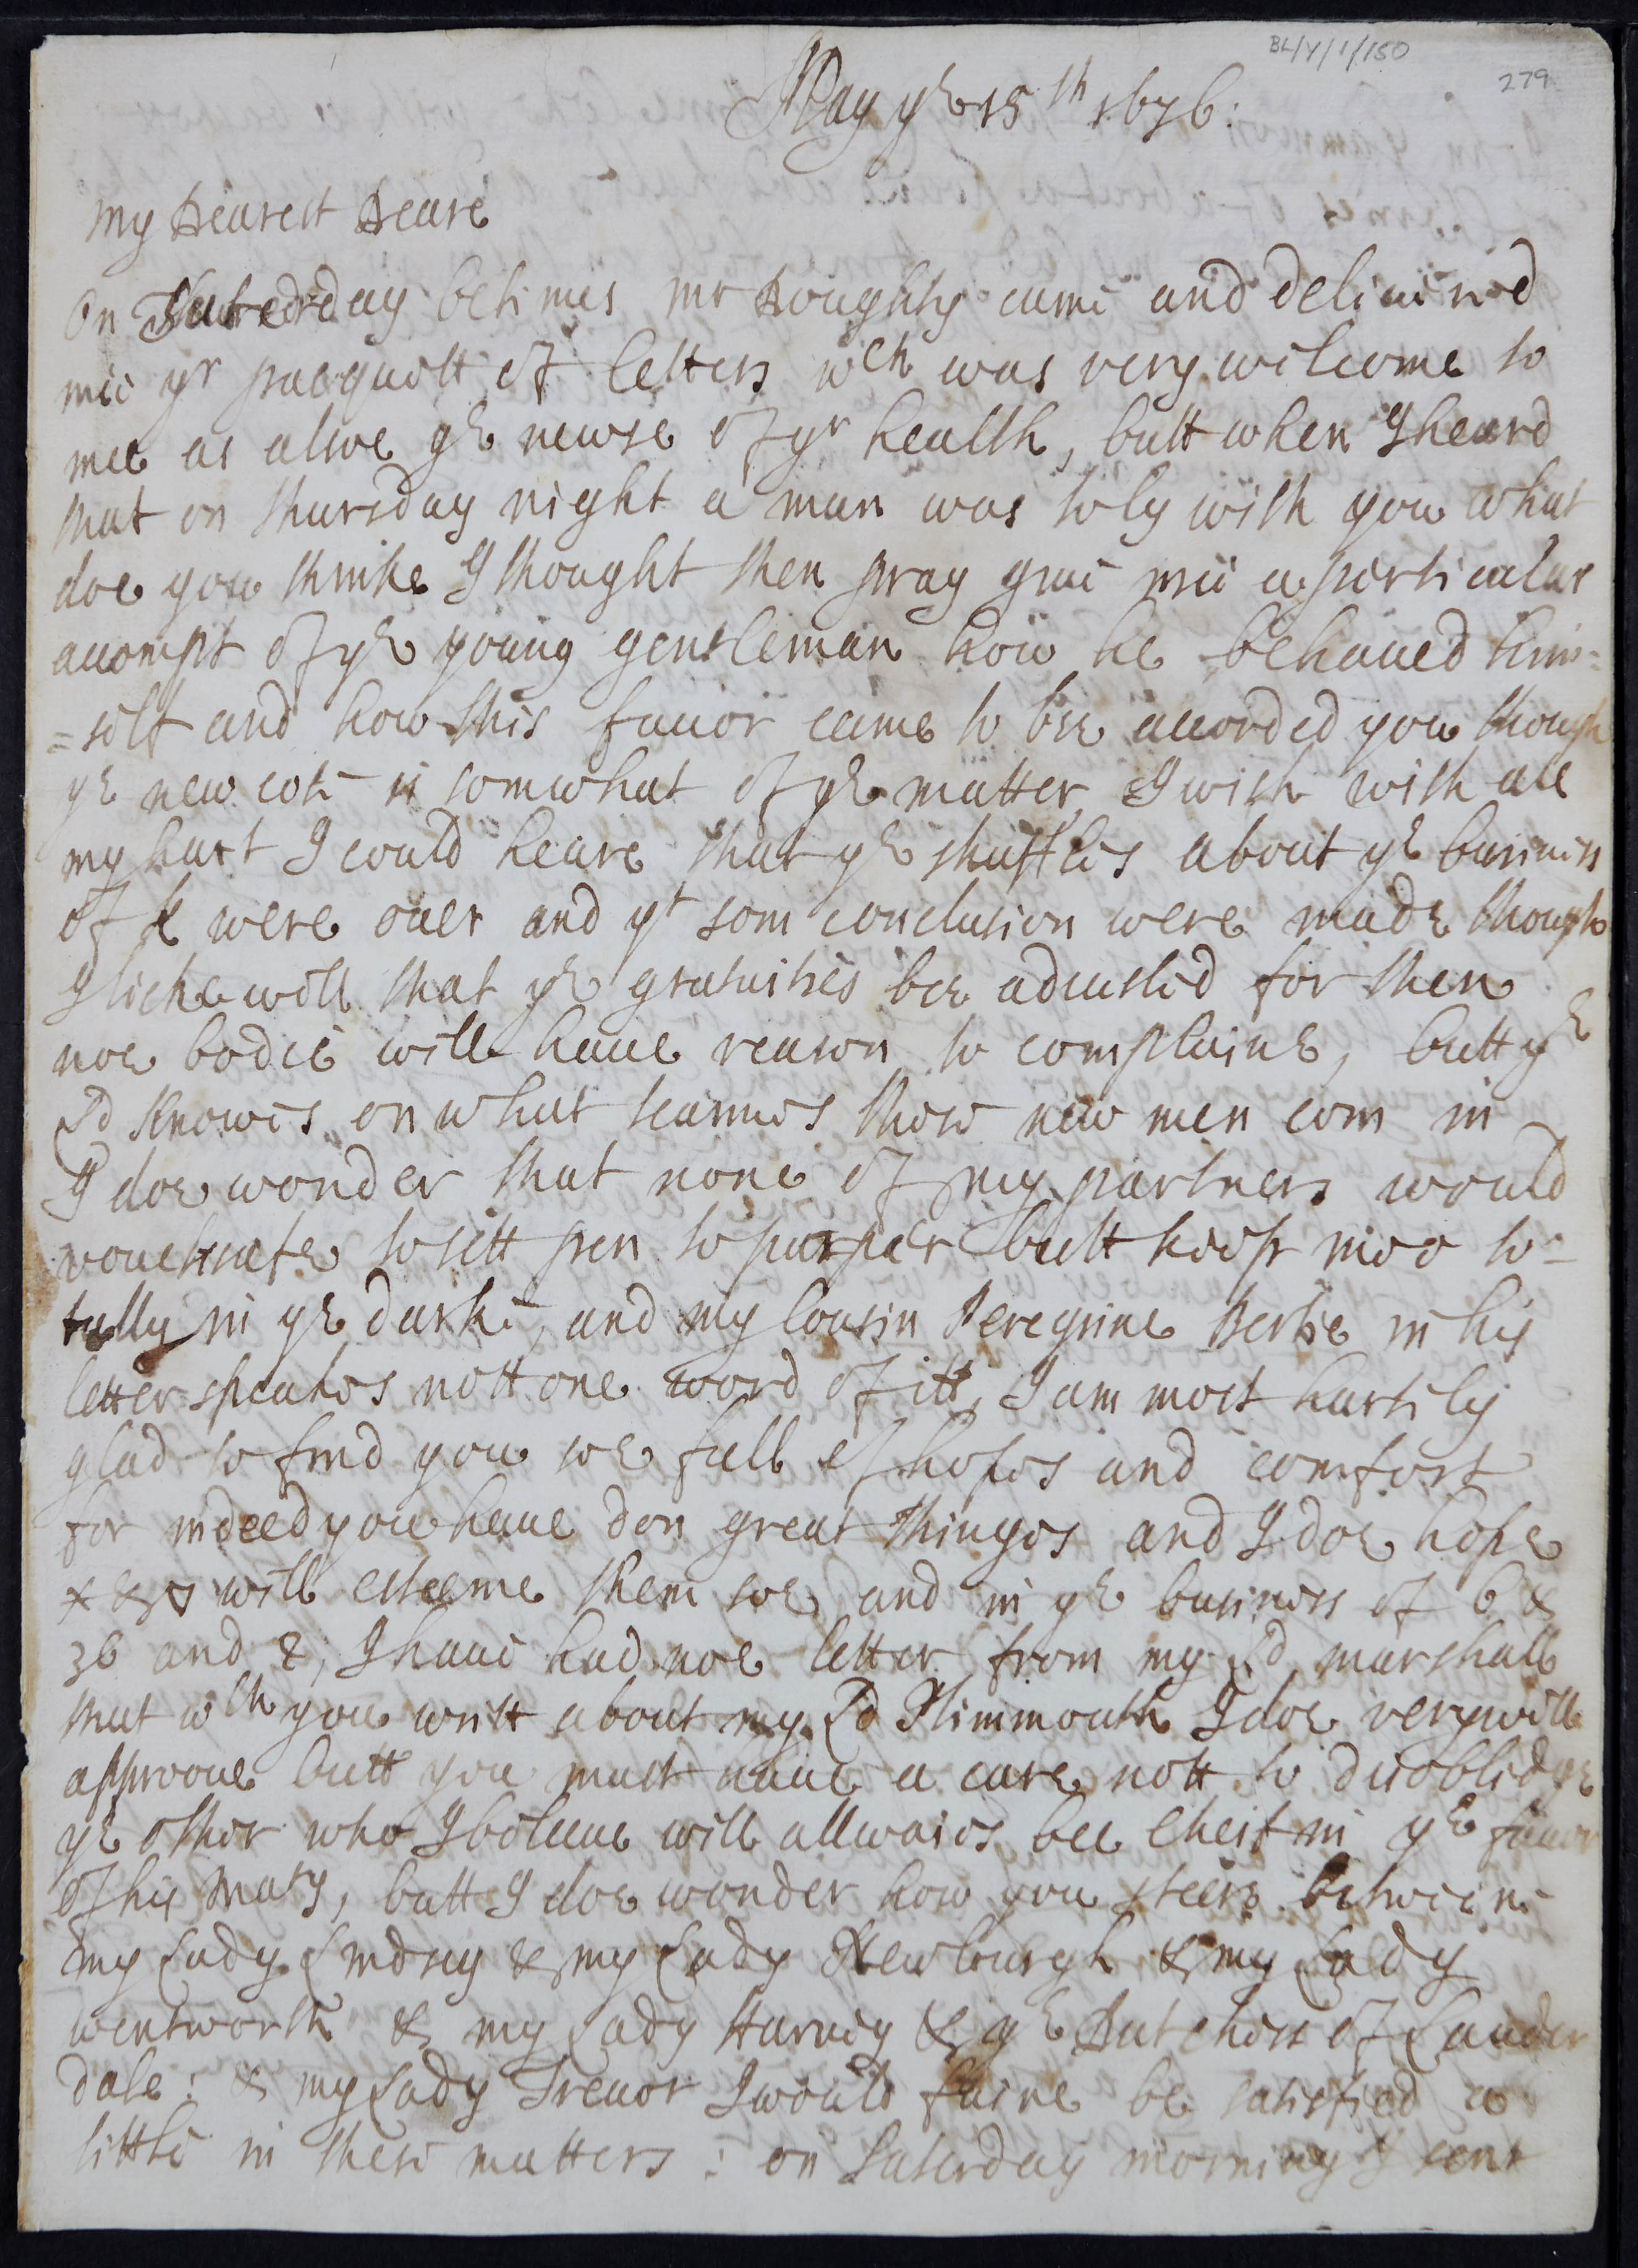 BL/Y/1/150
279
May ye 15th 1676:
My Dearest Deare
On Saterday betimes mr Doughty came and deliuered
mee yr pacquett of letters wch was very welcome to
mee as alsoe ye newse of yr health, butt when I heard
that on thursday night a man was to ly with you what
doe you thinke I thought then pray giue mee a perticular
accompt of ye young gentleman how he behaued him=
=selfe and how this fauor came to bee accorded you though
ye new is somwhat of ye matter I wish with all
my hart I could heare that ye shuffles about ye business
of were ouer and yt som conclusion were made though
I like well that ye gratuities bee adiusted for then
noe bodie will haue reason to complaine, butt ye
Ld knowes on what tearmes thos new men com in
I doe wonder that none of my partners would
vouchsafe to sett pen to paper butt keep mee to=
tally in ye darke, and my Cousin Peregrine Bertie in his
letter speakes nott one word of itt, I am most hartily
glad to find you soe full of hopes and comfort
for indeed you haue don great thinges and I doe hope
will esteeme them soe and in ye business of 6 &
36 and 2, I haue had noe letter from my Ld marshall
that wch you writt about my Ld Plimmouth I doe very well
approoue butt you must haue a care nott to disoblidge
ye other who I beleeue will allwaies bee cheif in ye fauor
of his Maty, butt I doe wonder how you steere betweene
my Lady Lindsey & my Lady Newburgh & my Lady
wentworth & my Lady Haruey & ye Dutchess of Lauder
dale: & my Lady Treuor I would faine be satisfied a
little in these matters: on Saterday morning I sent